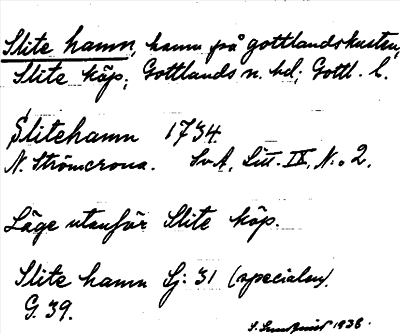 Slite hamn, hamn på gottlandskusten,
Slite köp; Gottlands n. hd; Gottl. l.
Slitehamn 1734.
N. Strömcrona. SvA, Litt. IX, N:o 2.
Läge utanför Slite köp.
Slite hamn Sj: 31 (specialen).
G. 39.
1938.